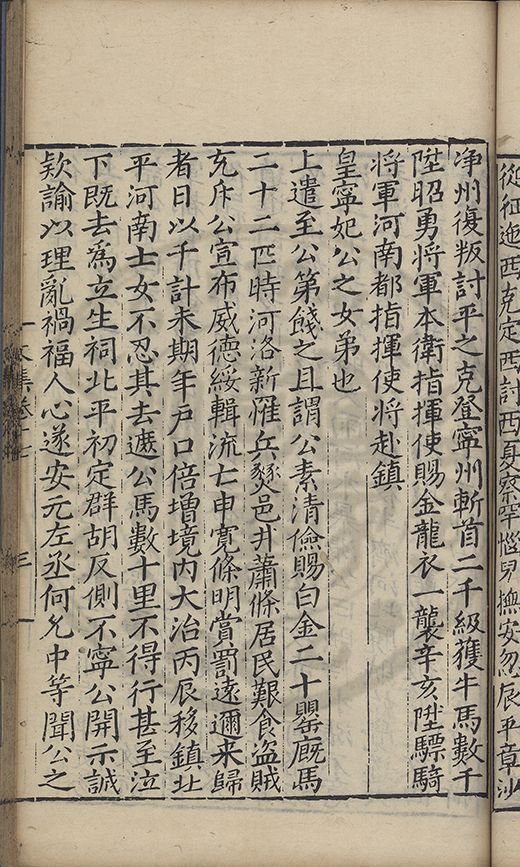 從征迤西克定西討西夏察罕惱兒撫安忽辰平章沙
净州復叛討平之克登寧州斬首二千級獲牛馬數千
陞昭勇將軍本衛指揮使賜金龍衣一襲辛亥陞驃騎
將軍河南都指揮使將赴鎮
皇寧妃公之女弟也
上遣至公第餞之且謂公素清儉賜白金二十罌厩馬
二十二匹時河洛新罹兵燹邑井蕭條居民艱食盗賊
充斥公宣布威德綏輯流亡申寬條明賞罰遠邇来歸
者日以千計未期年戸口倍增境内大治丙辰移鎮北
平河南士女不忍其去遮公馬數十里不得行甚至泣
下既去爲立生祠北平初定群胡反側不寧公開示誠
欵諭以理亂禍福人心遂安元左丞何允中等聞公之
文集卷十七
三